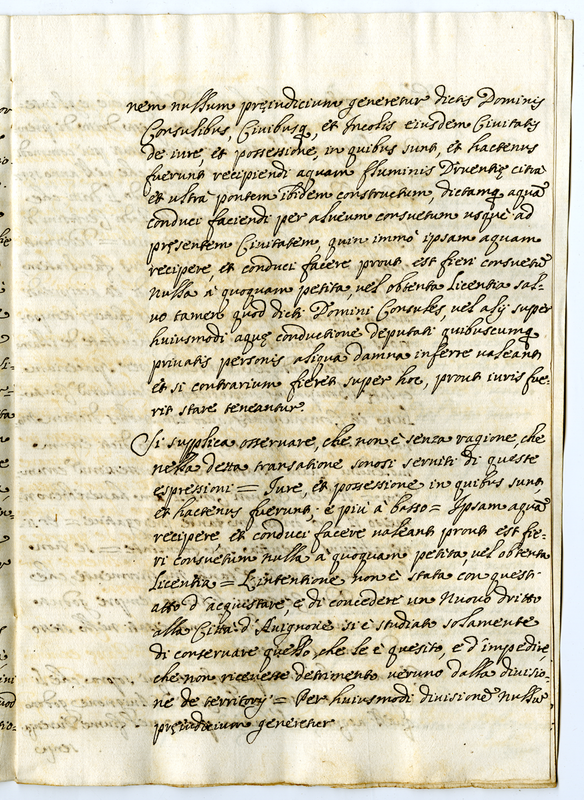 nem nullum pręiudicium generetur dictis Dominis
Consulibus, Civibusq, et Incolis eiusdem Civitatis
de iure, et possessione, in quibus sunt, et hactenus
fuerunt recipiendi aquam fluminis Druentię citra
et ultra pontem ibidem constructum, dictamq aquā
conduci faciendi per alueum consuetum usque ad
pręsentem Civitatem, quin immò ipsam aquam
recipere et conduci facere prout est fieri consuetū
nulla à quoquam petita, vel obtenta licentia sal-
vo tamen quod dicti Domini Consules, vel alij super
huiusmodi aquę conductione deputati quibuscumq
privatis personis aliqua damna inferre valeant
et si contrarium fieret super hoc, prout iuris fue-
rit stare teneantur.
Si supplica osseruare, che non è senza ragione, che
nella detta transatione sonosi seruiti di queste
espressioni = Iure, et possessione in quibus sunt,
et hactenus fuerunt; e più a basso = Ipsam aquā
recipere et conduci facere valeant prout est fie-
ri consuetum nulla à quoquam petita, vel obtenta
licentia = L'intentione non è stata con quest'
atto d'acquistare, e di concedere un Nuovo dritto
alla Città d'Auignone si è studiato solamente
di conseruare quello, che le è quesito, e d'impedire,
che non riceueste detrimento veruno dalla diuisio-
ne de territorij = Per huiusmodi divisionē nullū
pręiudicium generetur